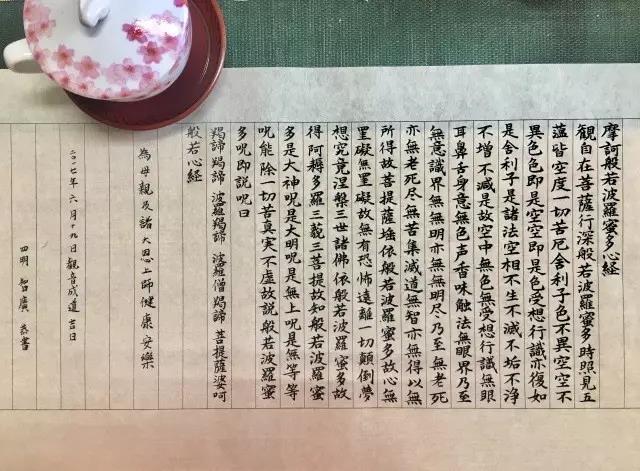 摩訶般若波羅蜜多心經
観自在菩薩行深般若波羅蜜多時照見五
蘊皆空度一切苦厄舍利子色不異空空不
異色色即是空空即是色受想行識亦復如
是舍利子是諸法空相不生不滅不垢不淨
不增不減是故空中無色無受想行識無眼
耳鼻舌身意無色声香味触法無眼界乃至
無意識界無無明亦無無明尽乃至無老死
亦無老死尽無苦集滅道無智亦無得以無
所得故菩提薩埵依般若波羅蜜多故心無
罣礙無罣礙故無有恐怖遠離一切顛倒夢
想究竟涅槃三世諸佛依般若波羅蜜多故
得阿耨多羅三藐三菩提故知般若波羅蜜
多是大神呪是大明呪是無上呪是無等等
呪能除一切苦真実不虛故説般若波羅蜜
多呪即説呪曰
羯諦羯諦 波羅羯諦 波羅僧羯諦 菩提薩婆呵
般若心経
為母親及諸大恩上師健康安樂
二〇一七年六月十九日觀音成道吉日
四明 智廣 恭書